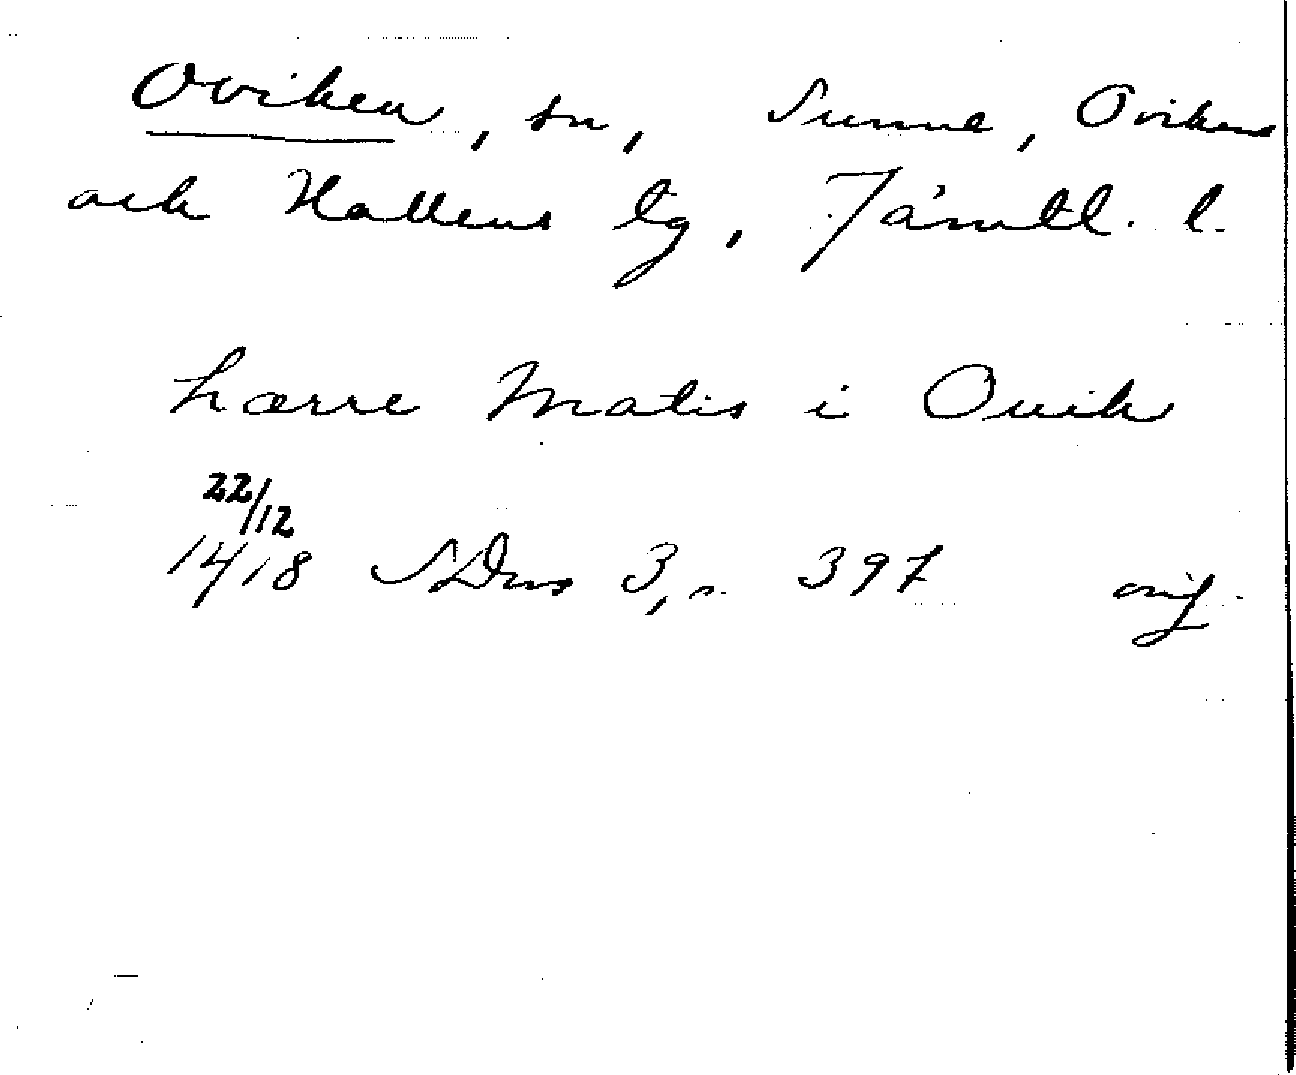 Oviken, sn, Sunne, Ovikens
och Hallens tg, Jämtl. l.
hærre Matis i Ouik
22/12
1418 SDns 3, s. 397 orig.